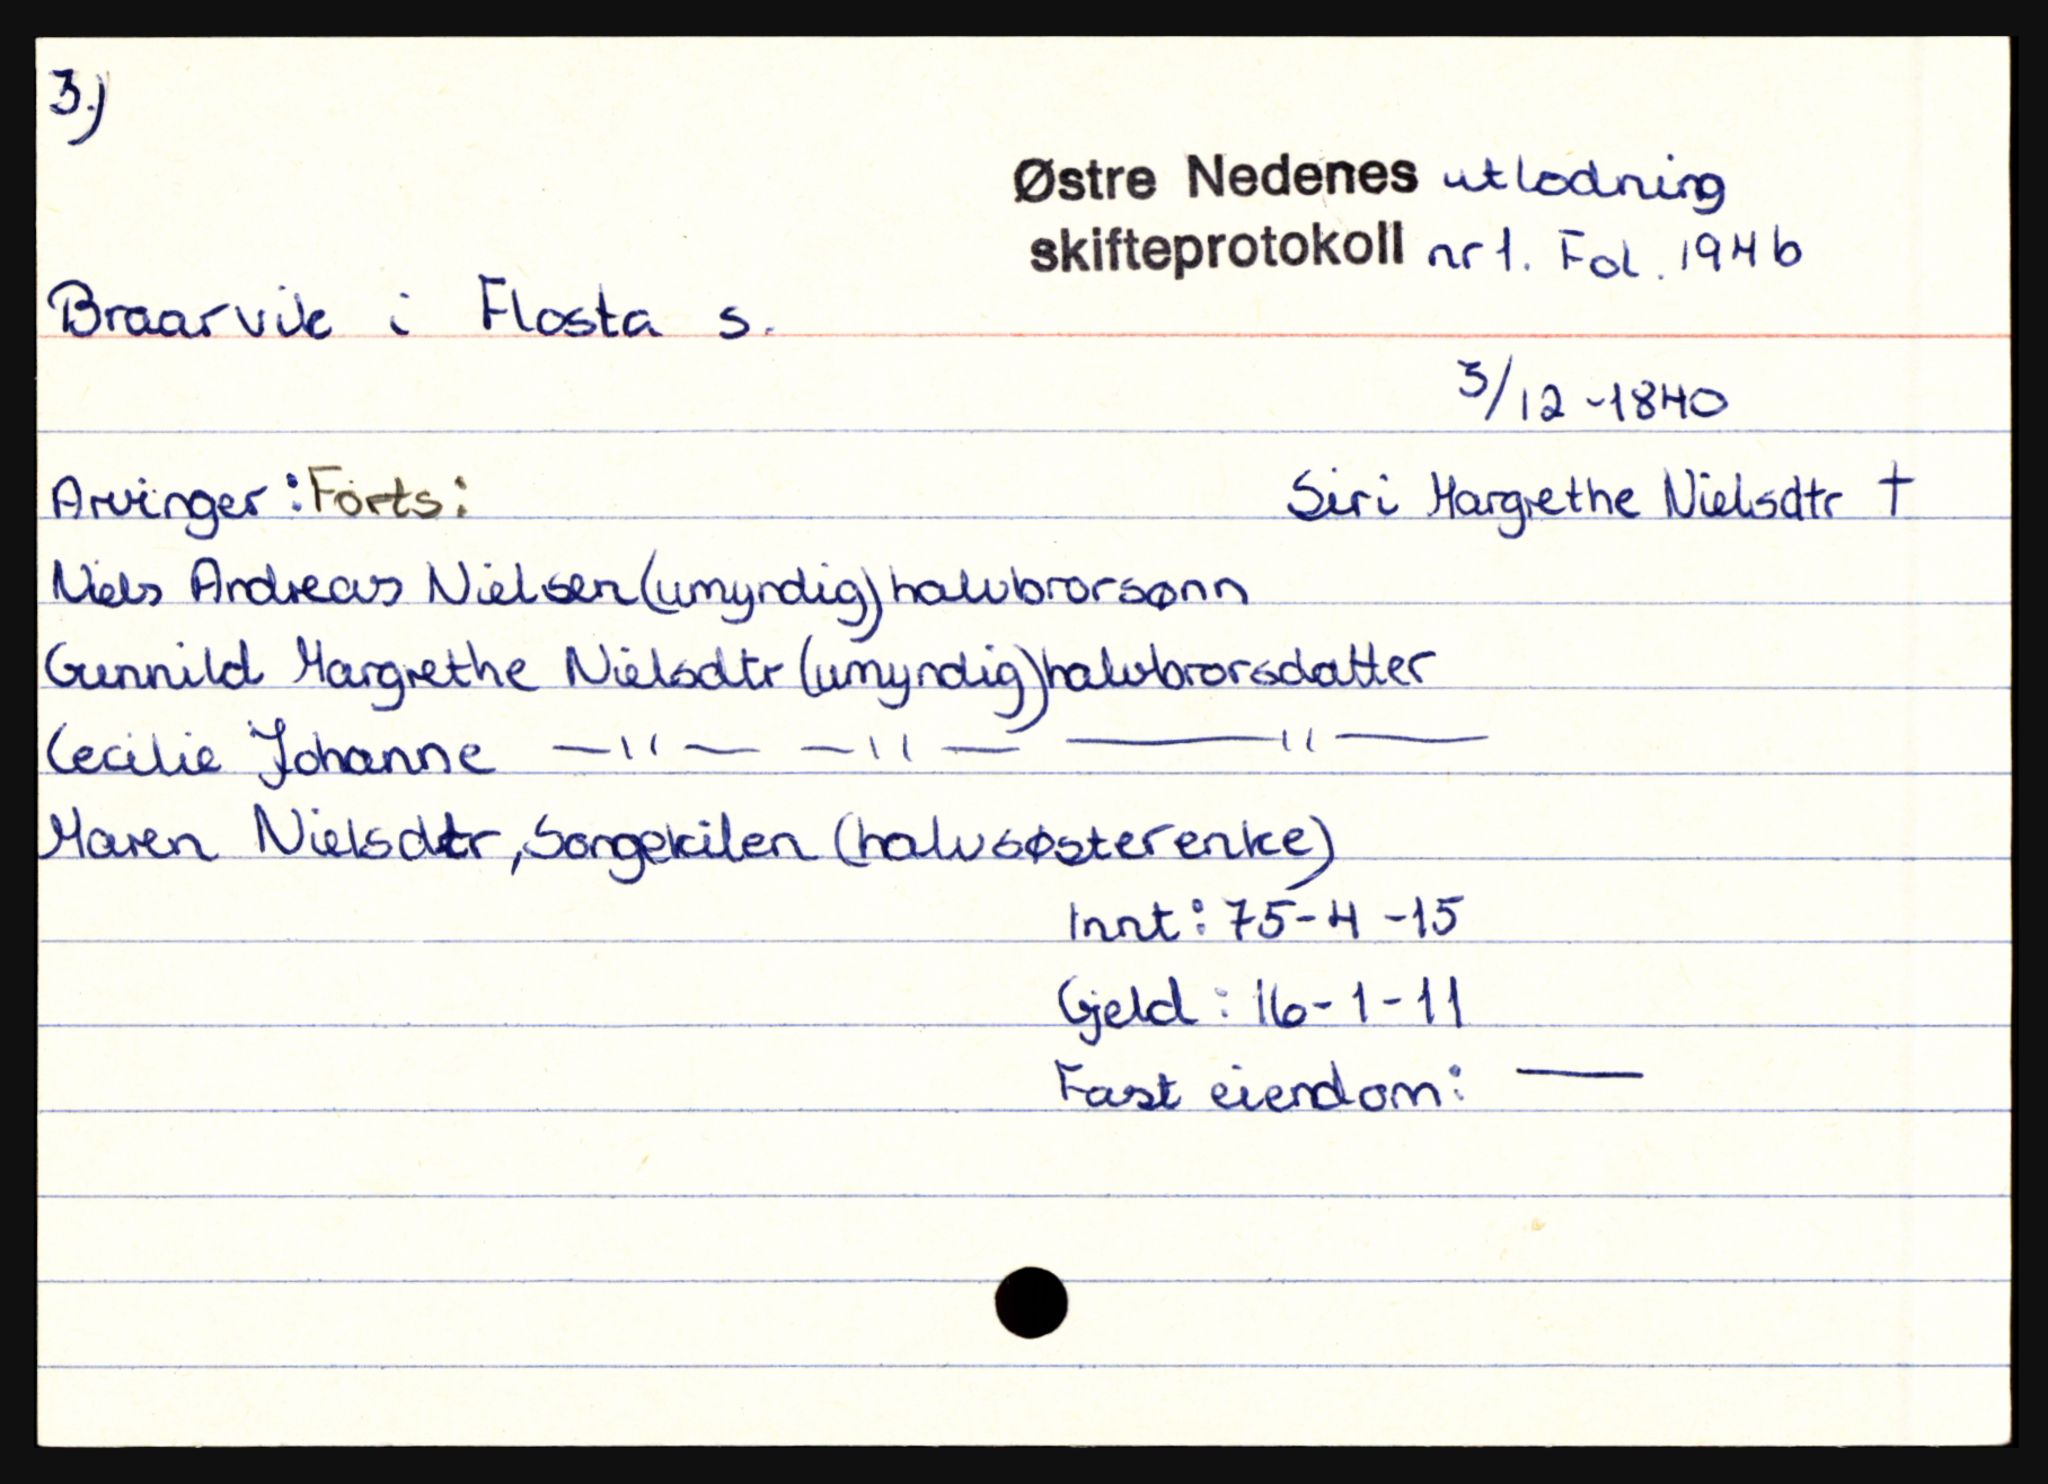 3.)
Østre Nedenes utlodning
skifteprotokoll nr 1. Fol. 194 b
Braarvik i Flosta s.
3/12 -1840
Arvinger: Forts: Siri Margrethe Nielsdtr †
Niels Andreas Nielsen (umyndig) halvbrorsønn
Gunnild Margrethe Nielsdtr (umyndig) halvbrorsdatter
Cecilie Johanne —"— —"— —"—
Maren Nielsdtr, Songekilen (halvsøster enke)
Innt: 75-4-15
Gjeld: 16-1-11
Fast eiendom: —